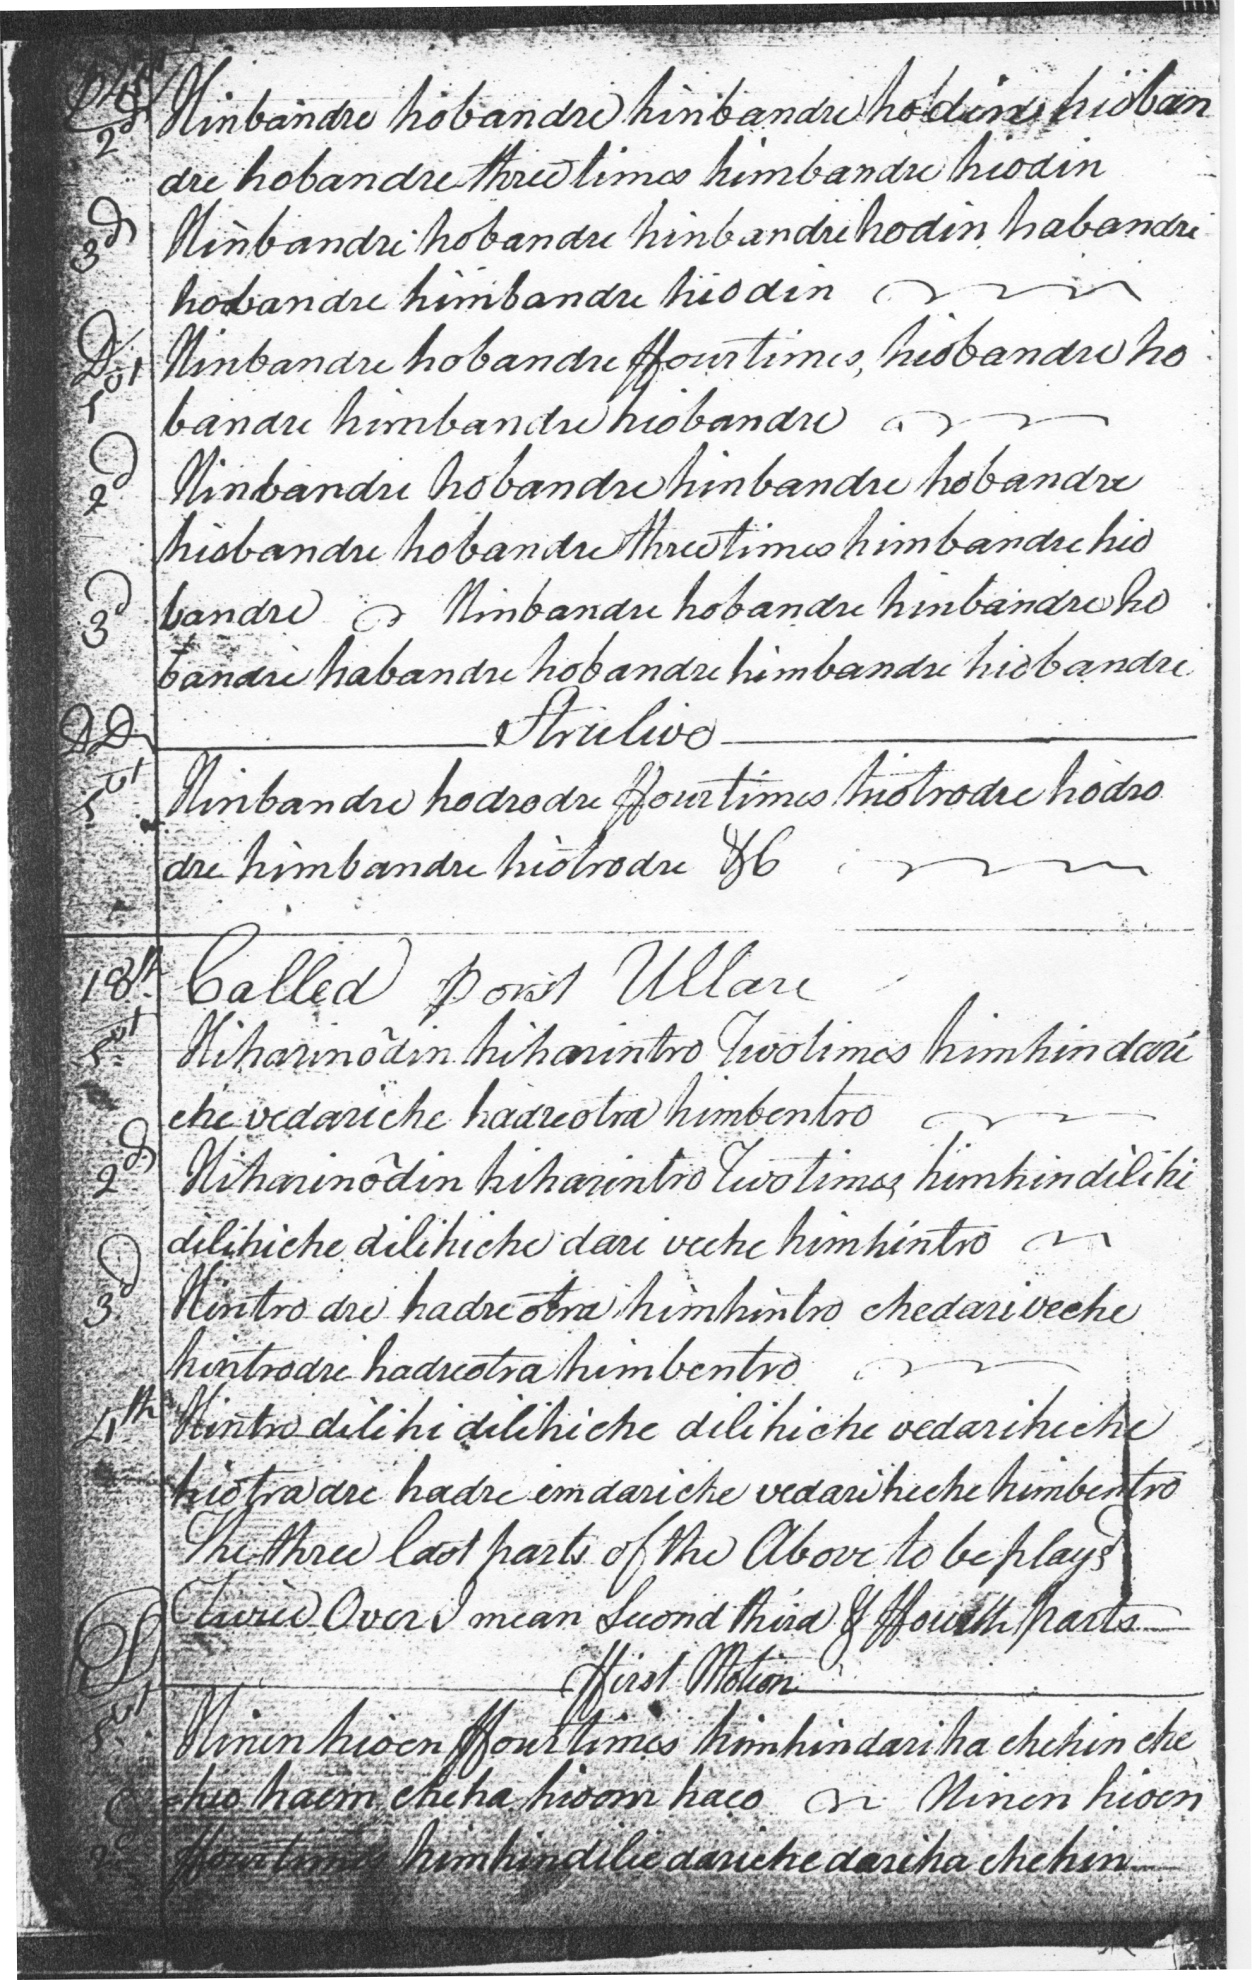 D 1st
2d Hinbandre hobandre hinbandre hodin hioban
dre hobandre three times himbandre hiodin
3d Hinbandre hobandre hinbandre hodin habandre
hobandre himbandre hiodin
D: 1st Hinbandre hobandre ffour times, hiobandre ho
bandre himbandre hiobandre
2d Hinbandre hobandre hinbandre hobandre
hiobandre hobandre three times himbandre hio
3d bandre Hinbandre hobandre hinbandre ho
bandre habandre hobandre himbandre hiobandre
DD Struliuo
1st Hinbandre hodrodre ffour times hiotrodre hodro
dre himbandre hiotrodre &c
18th Called port Ullare
1st Hiharinodin hiharintro Two times himhindari
che vedariche hadreotra himbentro
2d Hiharinodin hiharintro Two times himhindilihi
dilihiche dilihiche dari veche himhintro
3d Hintro dre hadreotra himhintro chedariveche
hintrodre hadreotra himbentro
4th Hintro dilihi dilihiche dilihiche vedarihiche
hiotradre hadre emdariche vedariheche himbentro
The three last parts of the Above to be playd
Twice Over I mean Second third & ffourth parts
S ffirst Motion
1st Hinen hioen ffour times himhindariha chehin che
hio haem cheha hioem haeo Hinen hioen
2d ffour times himhindilie dariche dariha chehin